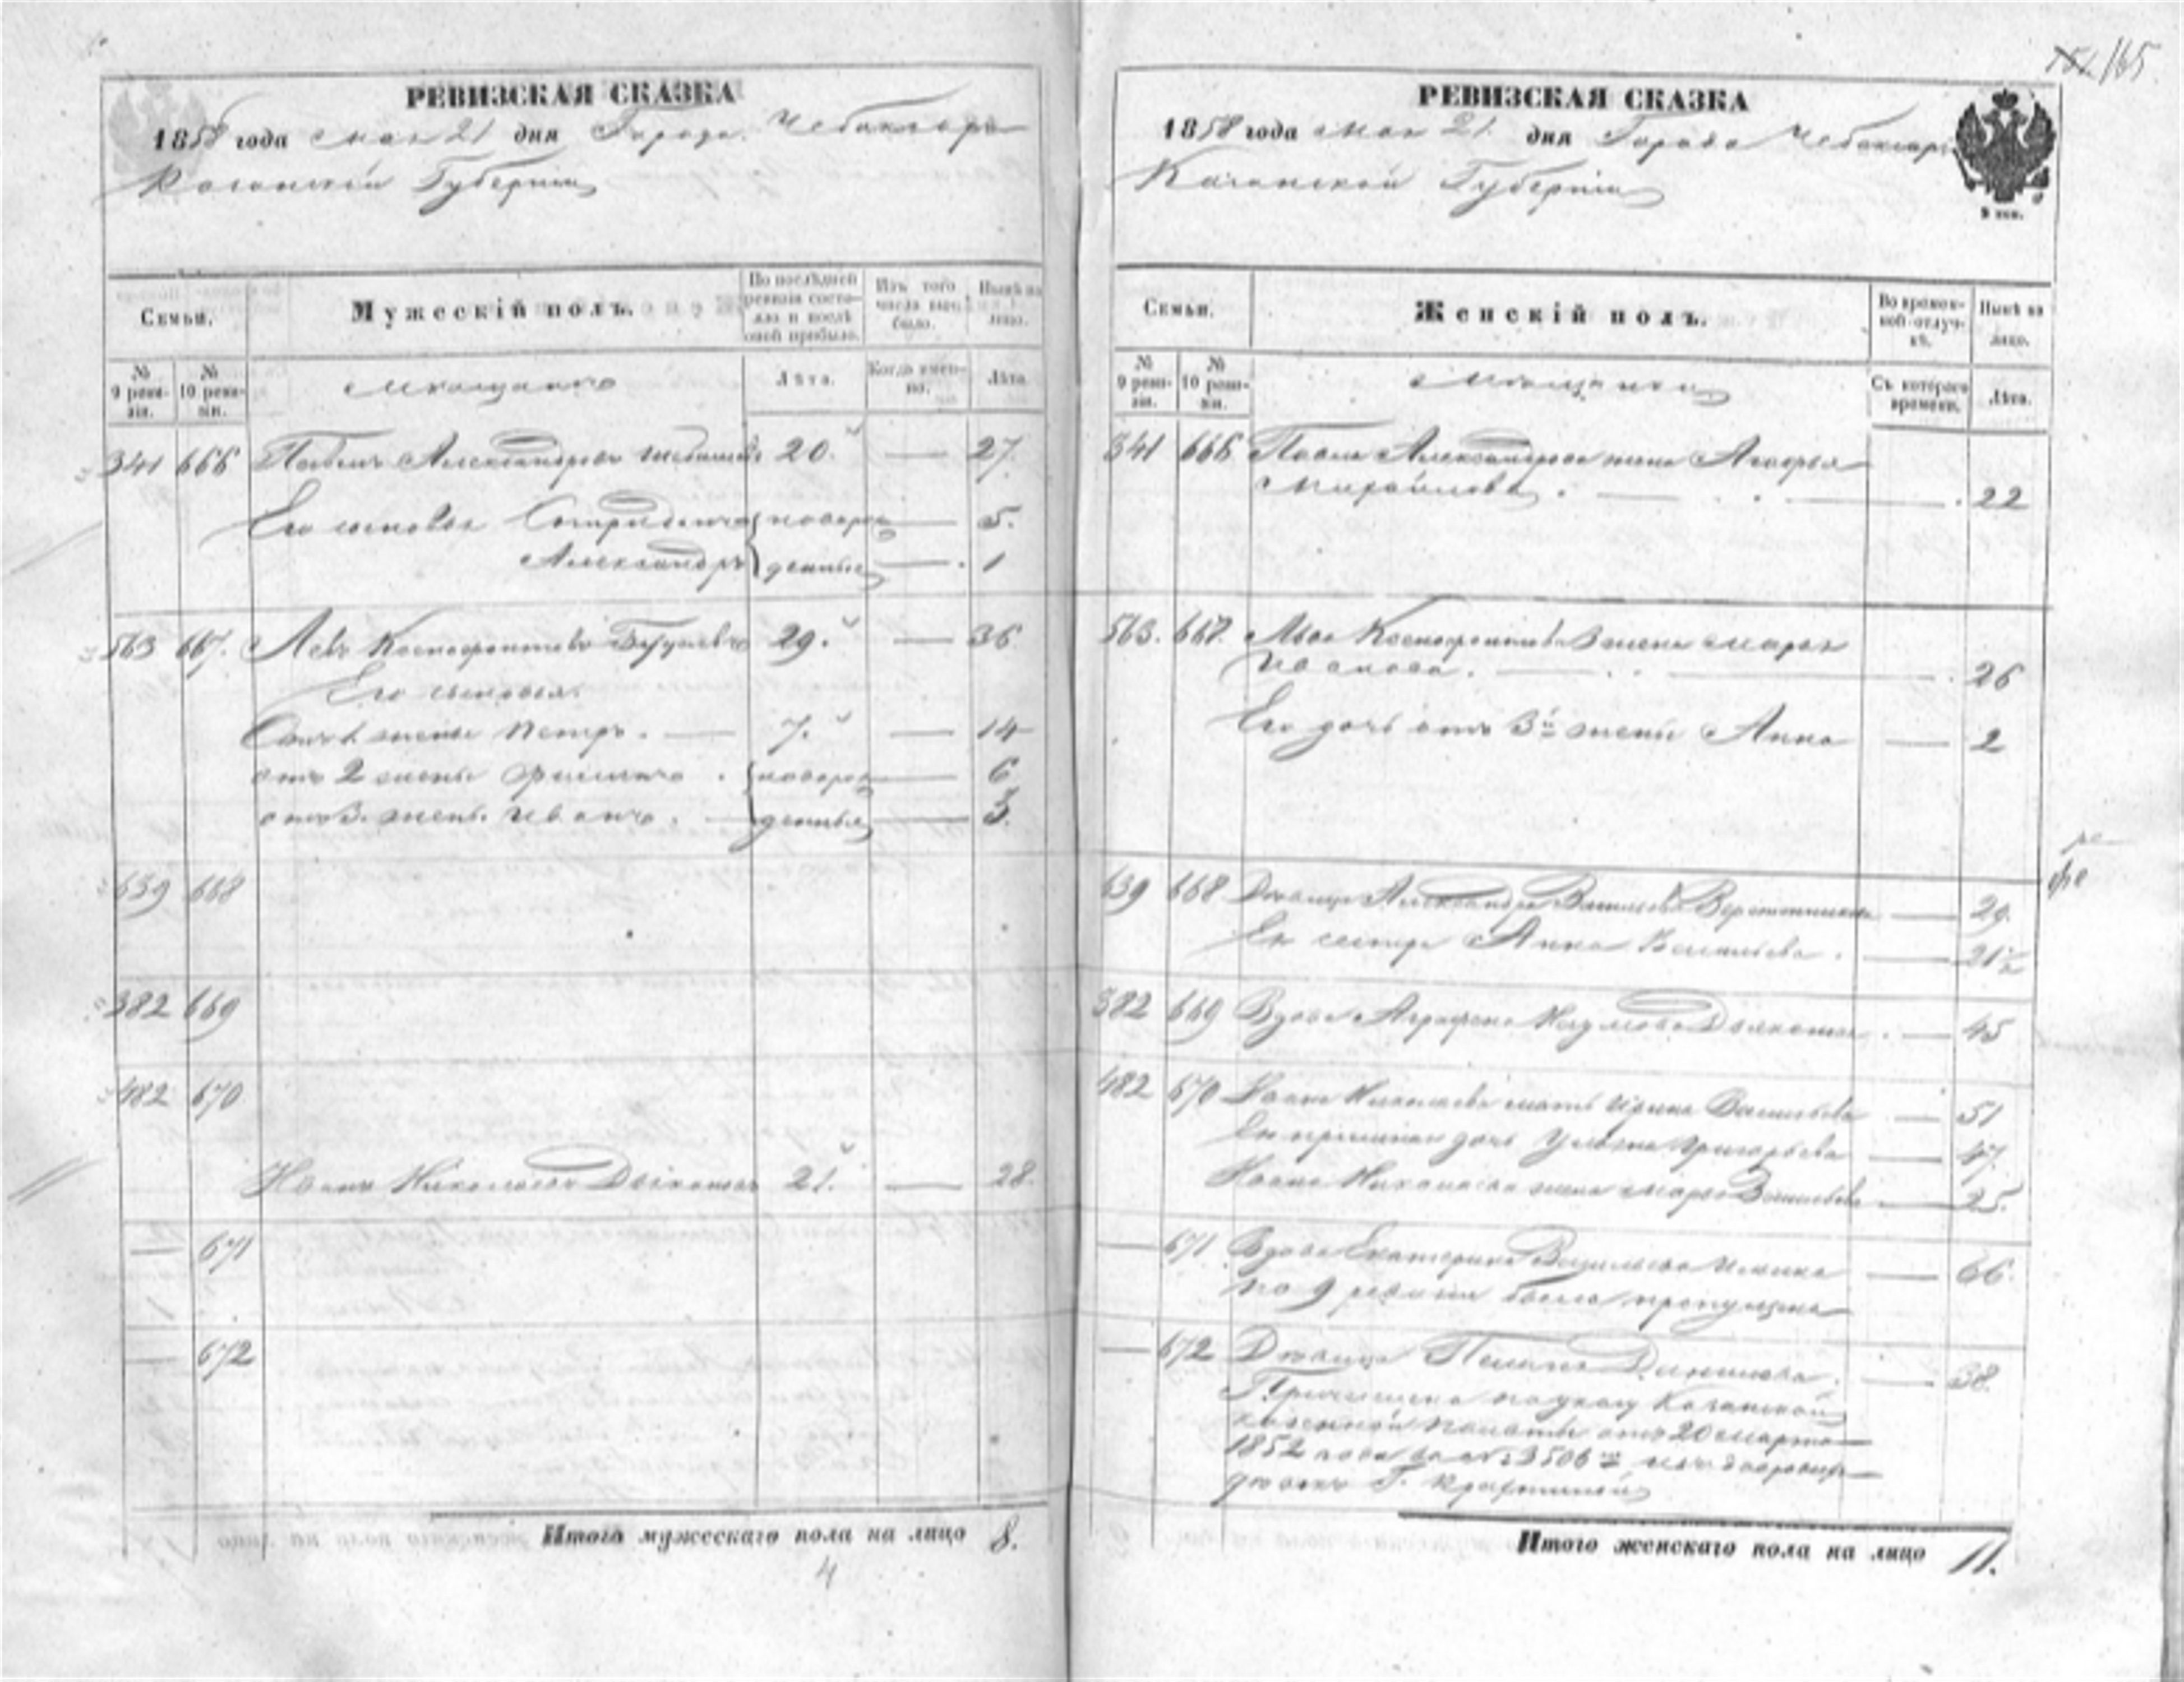 165
РЕВИЗСКАЯ СКАЗКА
1858 года мая 21 дня Города Чебоксаръ
Казанской Губерніи
Семьи.
Мужескій полъ.
По послѣдней ревизіи состояло и послѣ оной прибыло.
Изъ того числа выбыло.
Нынѣ на лицо.
№ 9 ревизіи.
№ 10 ревизіи.
Мѣщане
Лѣта.
Когда именно.
Лѣта.
341 666 Павелъ Александровъ 20 — 27.
Его сыновья новоро — 5.
Александръ денные — 1
563 667. Левъ Ксенофонтовъ 29. — 36
Его сыновья
Отъ 1 жены Петръ. — 7. — 14
отъ 2 жены Филипъ. новоро — 6
отъ 3. жены Иванъ. денные — 3.
639 668
382 669
482 670
Иванъ Николаевъ 21. — 28.
— 671
— 672
Итого мужескаго пола на лицо 8.
4
РЕВИЗСКАЯ СКАЗКА
1858 года мая 21. дня Города Чебоксаръ
Казанской Губерніи
Семьи.
Женскій полъ.
Во временной отлучкѣ.
Нынѣ на лицо.
№ 9 ревизіи.
№ 10 ревизіи.
Мѣщанки
Съ котораго времени.
Лѣта.
341 666 Павла Александрова жена Агафья
Михайлова. — 22
563. 667. Льва Ксенофонтова 3 жена Марья
Иванова. — 26
Его дочь отъ 3й жены Анна — 2
639 668 Дѣвица Александра Васильева — 29.
Ея сестра Анна Васильева. — 21½
382 669 Вдова Аграфена Наумова — 45
482 670 Ивана Николаева мать Ирина Васильева — 51
Ея дочь Ульяна Григорьева — 47.
Ивана Николаева жена Марья Васильева — 25.
— 671 Вдова Екатерина Васильева — 66.
по 9 ревизіи была пропущена
— 672 Дѣвица Данилова. — 38.
Причислена по указу Казанской
казенной палаты отъ 20 марта
1852 года за № 3506 изъ дворовыхъ
Г.
Итого женскаго пола на лицо 11.